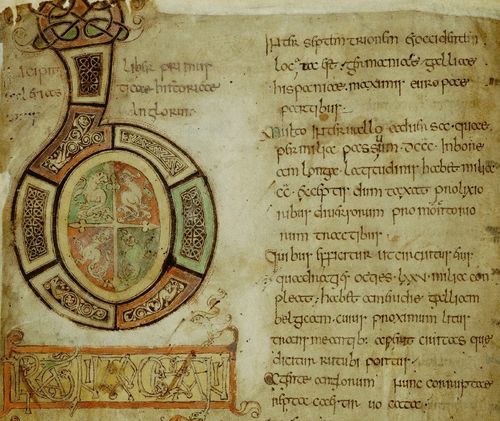 Incipit
liber primus
ecclesias
ticae historiae
anglorum
BRITTANI
inter septentrionem & occidentem
locata est · germaniae · galliae ·
hispaniae · maximis europae
partibus ·
Multo interuallo aduersa · quae
per milia passuum · dccc · in boream
longa · latitudinis habet milia
cc · exceptis dum taxat prolixio
ribus diuersorum promontorio
rum tractibus
Quibus efficitur ut circuitus eius
quadragies octies · lxxv · milia con
pleat · habet a meridie galliam
belgicam · cuius proximum litus
transmeantibus aperit ciuitas quae
dicitur rutubi portus ·
a gente anglorum nunc corrupte
reptacaestir uocata ·